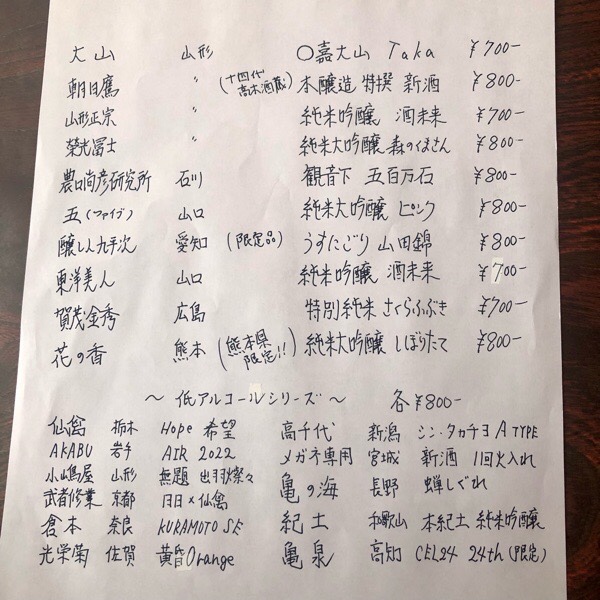 大山 山形 〇嘉大山 Taka ¥700-
朝日鷹 〃 (十四代 高木酒蔵) 本醸造 特撰 新酒 ¥800-
山形正宗 〃 純米吟醸 酒未来 ¥700-
榮光冨士 〃 純米大吟醸 森のくまさん ¥800-
農口尚彦研究所 石川 観音下 五百万石 ¥800-
五(ファイブ) 山口 純米大吟醸 ピンク ¥800-
醸し人九平次 愛知 (限定品) うすにごり 山田錦 ¥800-
東洋美人 山口 純米吟醸 酒未来 ¥700-
賀茂金秀 広島 特別純米 さくらふぶき ¥700-
花の香 熊本 (熊本県限定!!) 純米大吟醸 しぼりたて ¥800-
～ 低アルコールシリーズ ～ 各¥800-
仙禽 栃木 Hope 希望 高千代 新潟 シン・タカチヨ A TYPE
AKABU 岩手 AIR 2022 メガネ専用 宮城 新酒 1回火入れ
小嶋屋 山形 無題 出羽燦々 亀の海 長野 蝉しぐれ
武者修業 京都 日日×仙禽 紀土 和歌山 本紀土 純米吟醸
倉本 奈良 KURAMOTO SE 亀泉 高知 CEL24 24th (限定)
光栄菊 佐賀 黄昏Orange